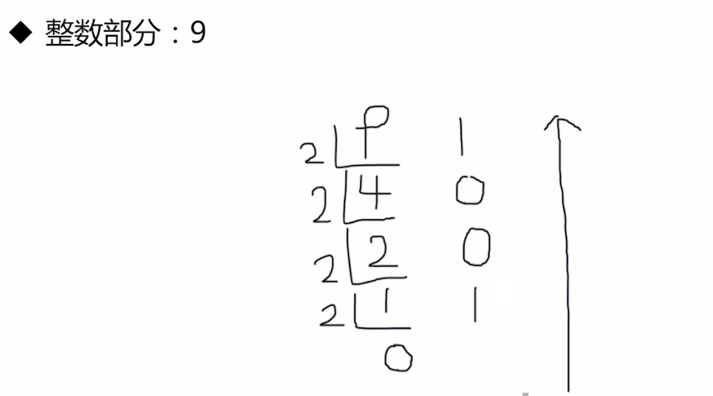 ◆ 整数部分：9
2 9 1
2 4 0
2 2 0
2 1 1
0